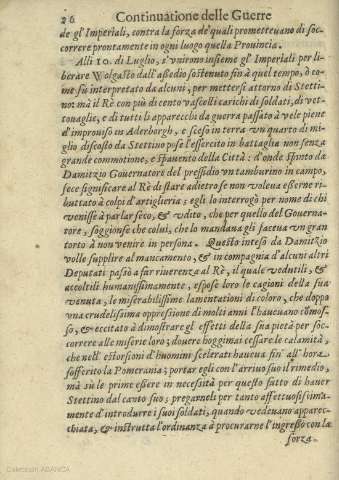 26 Continuatione delle Guerre
de gl' Imperiali, contra la forza de' quali promettevano di soc-
correre prontamente in ogni luogo quella Provincia.
Alli 10. di Luglio, s'unirono insieme gl' Imperiali per li-
berare Wolgasto dall' assedio sostenuto fin à quel tempo, ò co-
me fù interpretato da alcuni, per mettersi attorno di Stetti-
no: mà il Rè con più di cento vascelli carichi di soldati, di vet-
tovaglie, e di tutti li apparecchi da guerra passato à vele piene
d'improviso in Aderborgh, e sceso in terra un quarto di mi-
glio discosto da Stettino pose l'essercito in battaglia non senza
grande commotione, e spavento della Città: d'onde spinto da
Damitzio Governatore del pressidio un tamburino in campo,
fece significare al Rè di stare adietro se non voleva esserne ri-
buttato à colpi d'artiglieria; egli lo interrogò per nome di chi
venisse à parlar seco, & udito, che per quello del Governa-
tore, soggionse che colui, che lo mandava gli faceva un gran
torto à non venire in persona. Questo inteso da Damitzio
volle supplire al mancamento, & in compagnia d'alcuni altri
Deputati passò a far riverenza al Rè, il quale vedutili, &
accoltili humanissimamente, espose loro le cagioni della sua
venuta, le miserabilissime lamentationi di coloro, che doppo
una crudelissima oppressione di molti anni l'havevano cōmos-
so, & eccitato à dimostrare gl' effetti della sua pietà per soc-
correre alle miserie loro; dovere hoggimai cessare le calamità,
che nell' estorsioni d'huomini scelerati haveva fin' all' hora
sofferito la Pomerania; portar egli con l'arrivo suo il rimedio,
mà sù le prime essere in necessità per questo fatto di haver
Stettino dal canto suo; pregarneli per tanto affettuosissima-
mente d'introdurre i suoi soldati, quando vedevano apparec-
chiata, & instrutta l'ordinanza à procurarne l'ingresso con la
forza.
Colección ABANCA